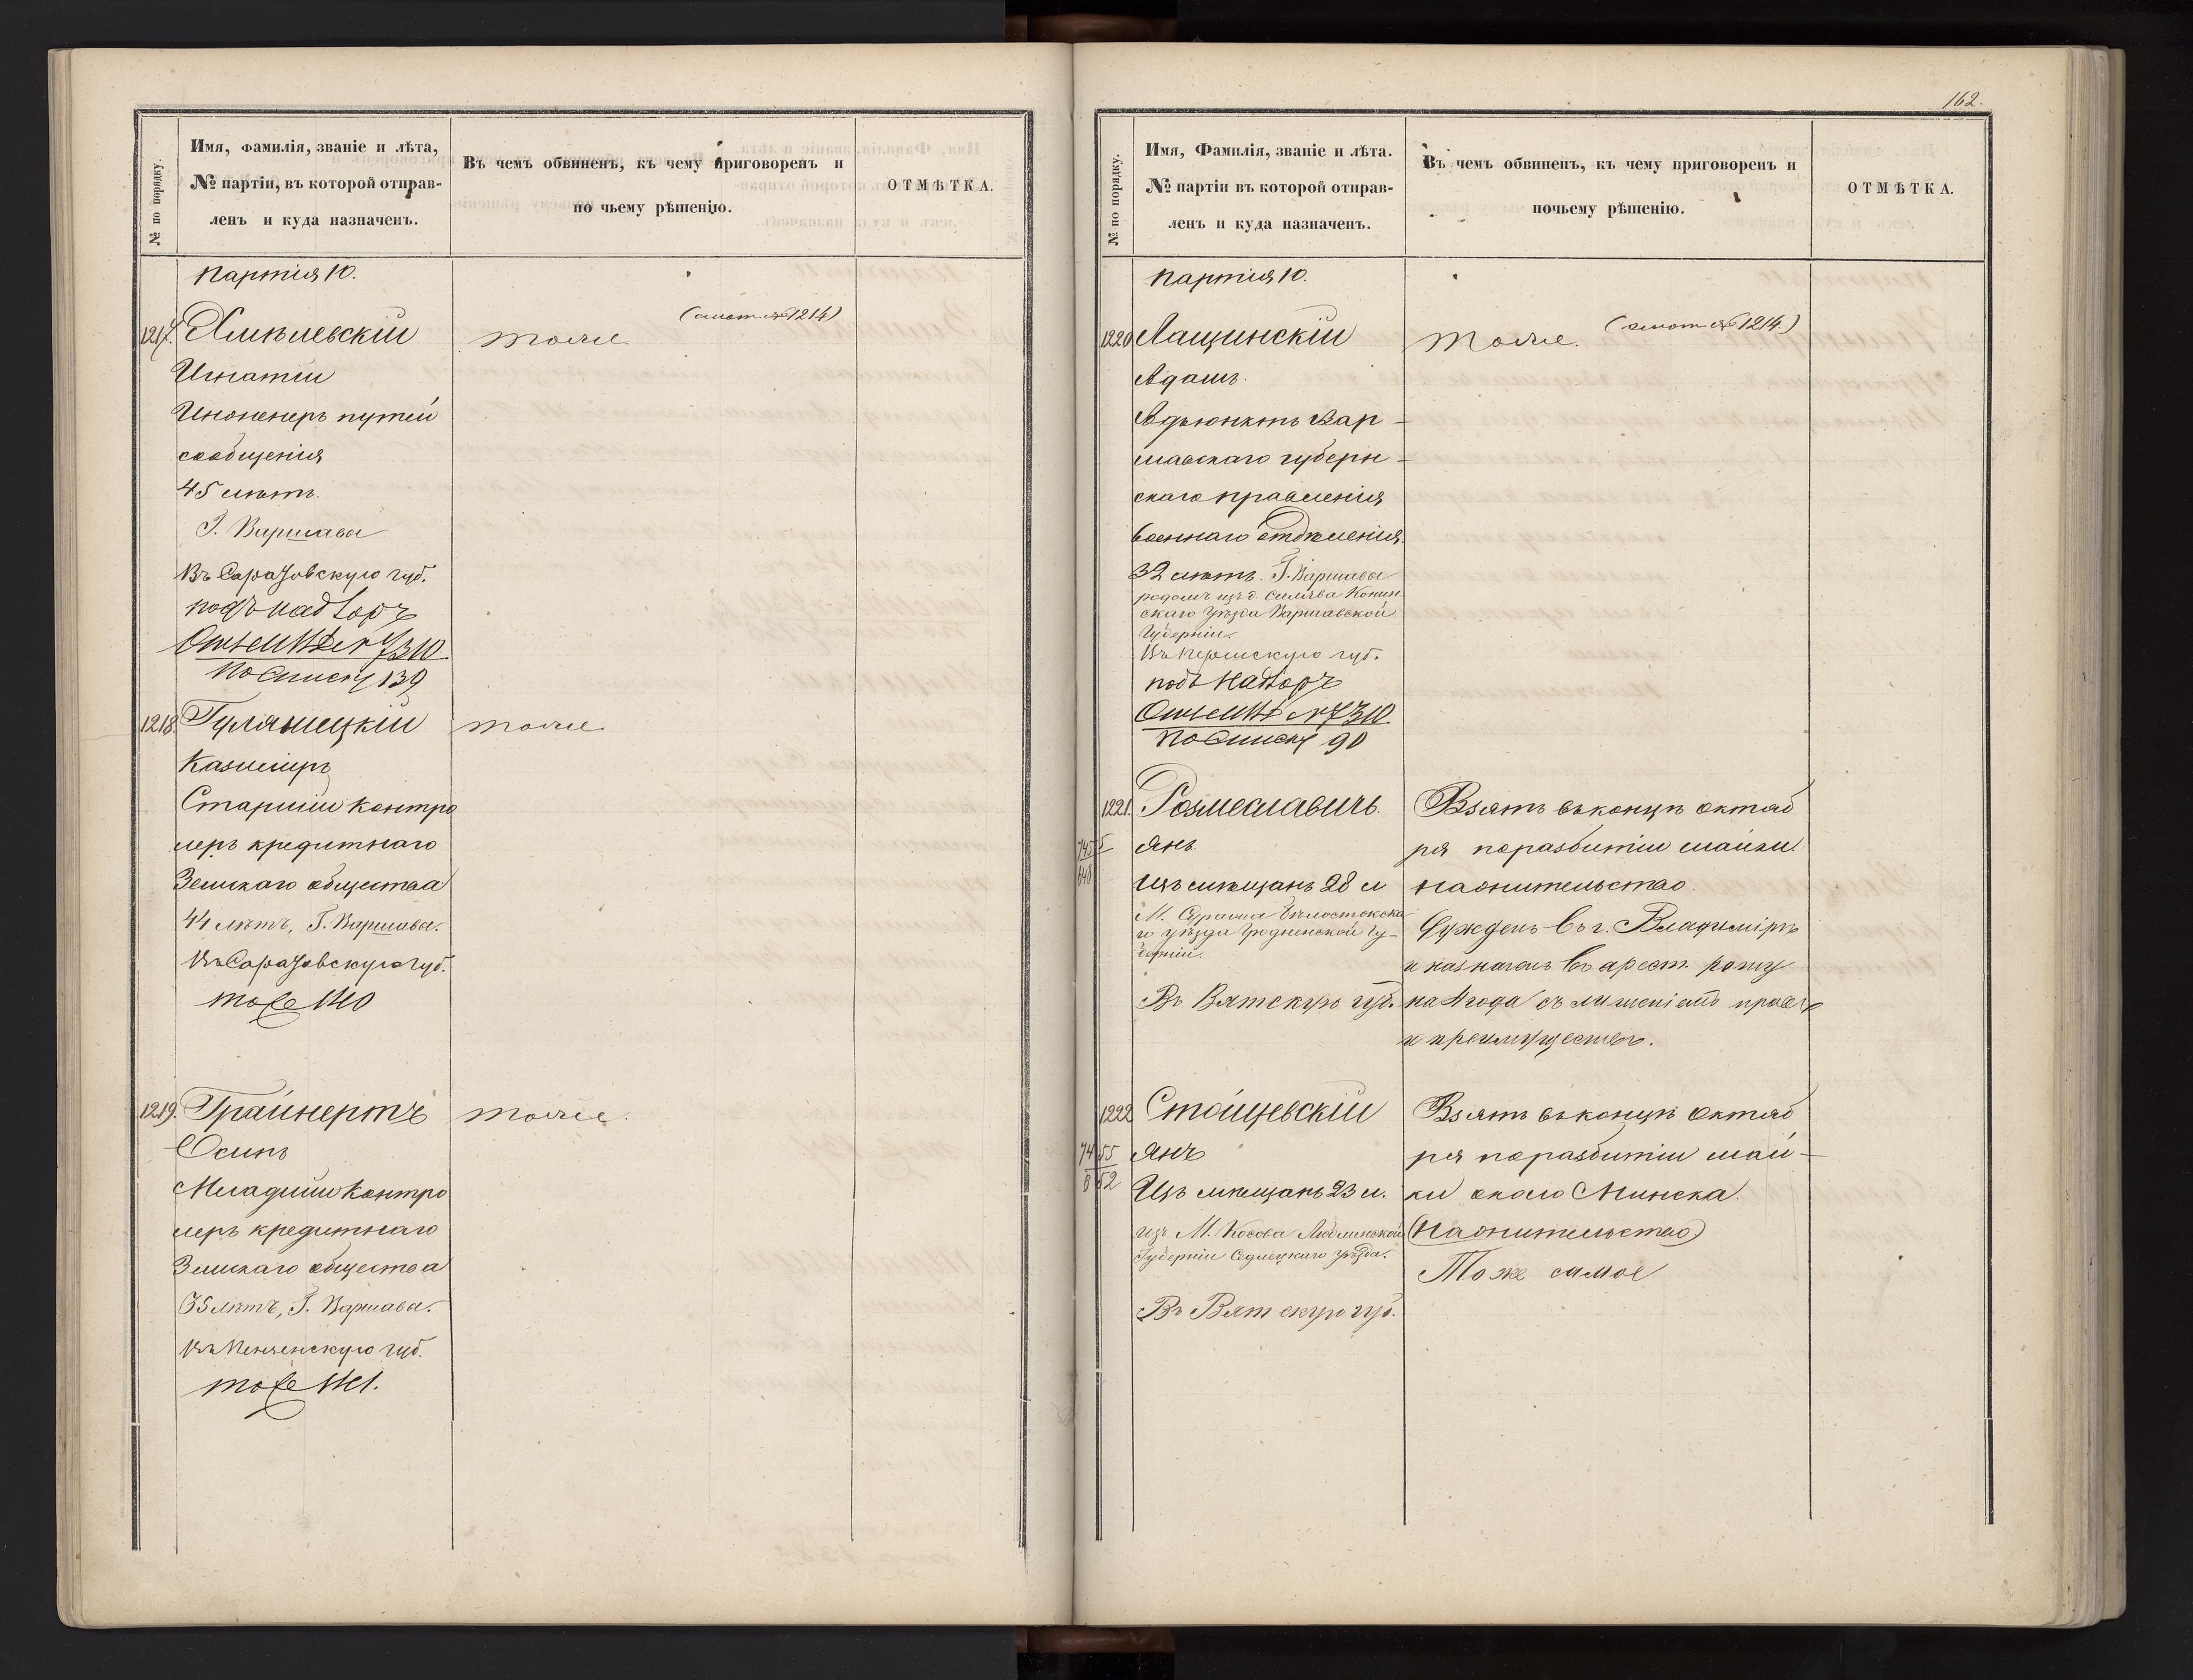 № по порядку.
Имя, Фамилія, званіе и лѣта,
№ партіи, въ которой отправ-
ленъ и куда назначенъ.
Въ чемъ обвиненъ, къ чему приговоренъ и
по чьему рѣшенію.
ОТМѢТКА.
Партія 10.
1217. Хмѣлевскій
Тоже. (смот. № 1214)
Игнатій
Инженеръ путей
сообщенія
45 лѣтъ.
Г. Варшавы
Въ Саратовскую губ.
подъ надзоръ
№ 7310
По списку 139
1218. Гуляницкій
тоже.
Казиміръ
Старшій контро
леръ кредитнаго
Земскаго общества
44 лѣтъ, Г. Варшавы.
Въ Саратовскую губ.
тоже 140
1219. Грайнертъ
тоже.
Осипъ
Младшій контро
леръ кредитнаго
Земскаго общества
35 лѣтъ, Г. Варшавы.
Въ Пензенскую губ.
тоже 141.
162.
№ по порядку.
Имя, Фамилія, званіе и лѣта.
№ партіи въ которой отправ-
ленъ и куда назначенъ.
Въ чемъ обвиненъ, къ чему приговоренъ и
почьему рѣшенію.
ОТМѢТКА.
Партія 10.
1220 Лащинскій
Тоже. (смот. № 1214.)
Адамъ.
Адъюнктъ Вар-
шавскаго губерн-
скаго правленія
военнаго отдѣленія.
32 лѣтъ. Г. Варшавы
родомъ изъ д. Конин-
скаго Уѣзда Варшавской
Губерніи.
Въ Пермскую губ.
подъ надзоръ
№ 7310
По списку 90
1221. Розмеславичъ.
Взятъ въ концѣ октяб
Янъ
ря по разбитіи шайки.
Изъ мѣщанъ 28 л
на жительство.
М. Суража Бѣлостокска
го уѣзда Гродненской Гу-
берніи.
Сужденъ въ г. Владимірѣ
и назначенъ въ арест. роту
Въ Вятскую губ.
на 4 года съ лишеніемъ правъ
и преимуществъ.
1222 Стоищевскій
Взятъ въ концѣ октяб
Янъ
ря по разбитіи шай-
Изъ мѣщанъ 23 л.
ки около Минска.
изъ М. Косова Люблинской
Губерніи Седлецкаго уѣзда.
(На жительство)
Тоже самое
Въ Вятскую губ.